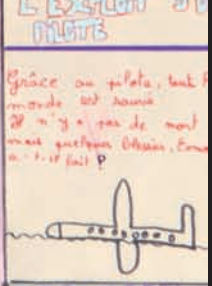 L'EXPLOIT D'U
PILOTE
Grâce au pilote, tout l
monde est sauvé
Il n'y a pas de mort
mais quelques blessés,
a-t-il fait ?